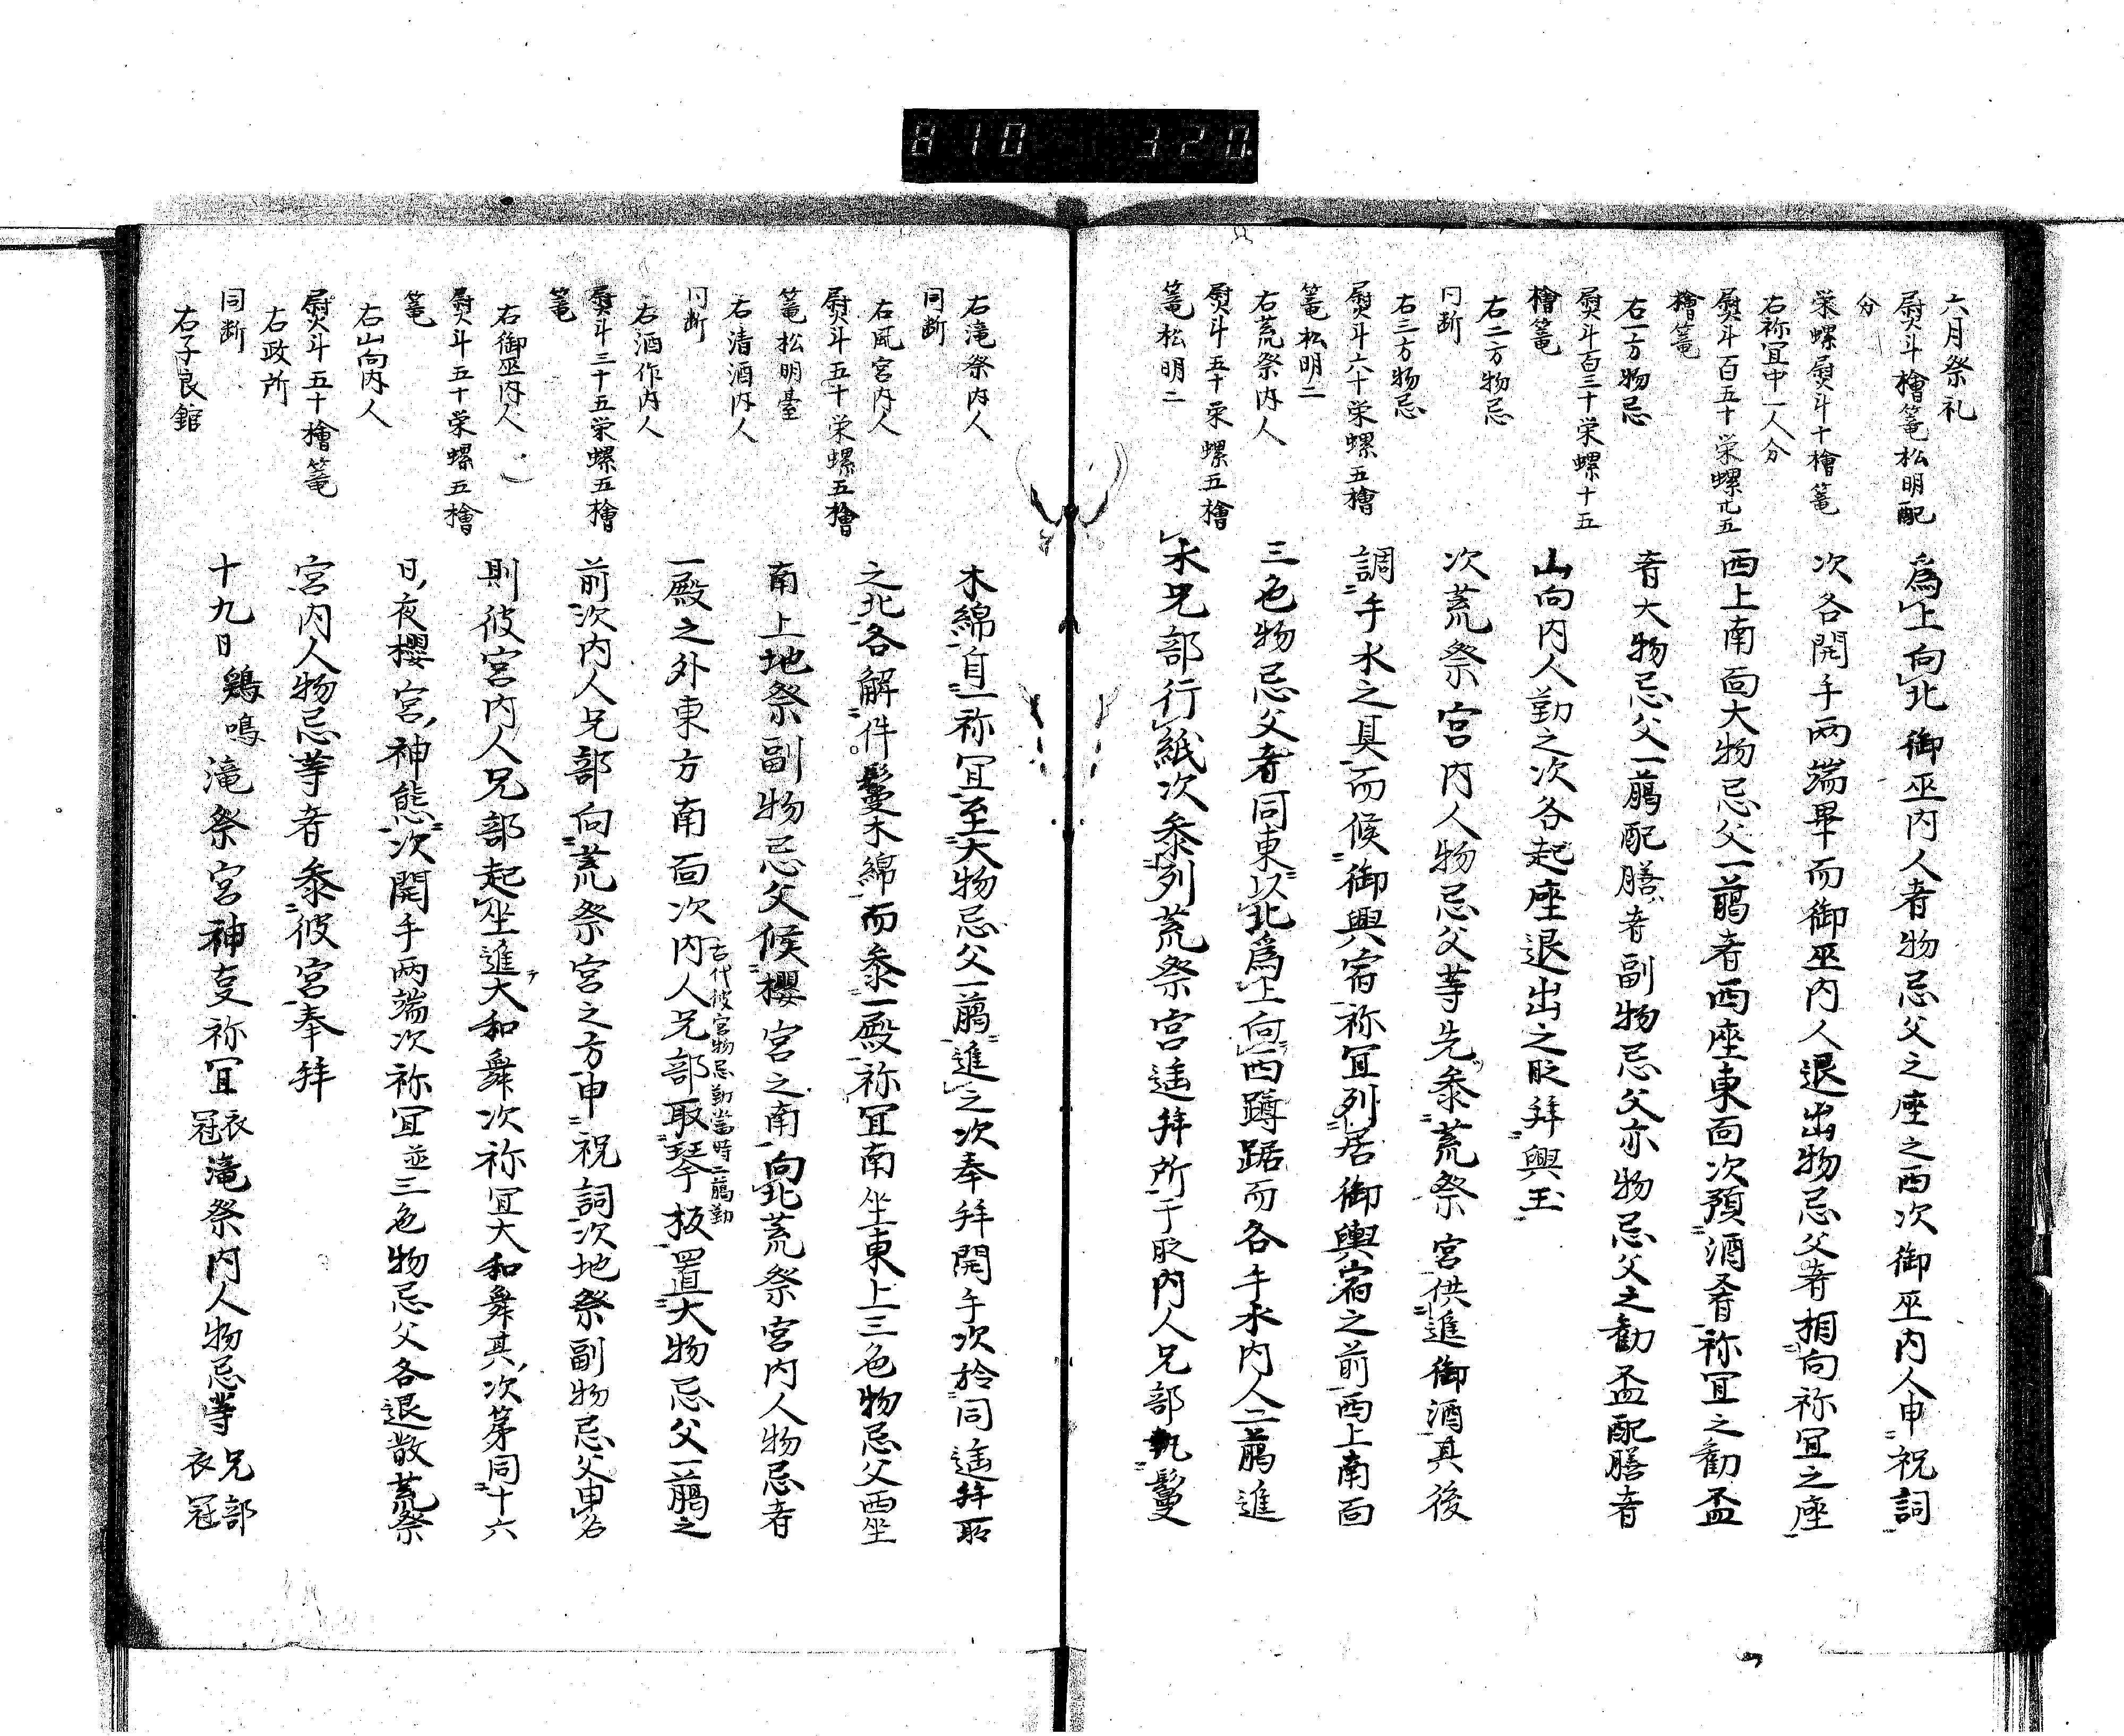 810 320
六月祭礼
熨斗檜篭松明配
分
栄螺熨斗十檜篭
右祢冝中一人分
熨斗百五十栄螺廿五
檜篭
右一方物忌
熨斗百三十栄螺十五
檜篭
右二方物忌
同断
右三方物忌
熨斗六十栄螺五檜
篭松明二
右荒祭内人
熨斗五十栄螺五檜
篭松明二
為上向北御巫内人者物忌父之座之西次御巫内人申祝詞
次各開手両端畢而御巫内人退出物忌父者相向祢冝之座
西上南面大物忌父一﨟者西座東面次預酒肴祢冝之勧盃
者大物忌父一﨟配膳者副物忌父亦物忌父之勧盃配膳者
山向内人勤之次各起座退出之時拜輿玉
次荒祭宮内人物忌父等先参荒祭宮供進御酒其後
調手水之具而候御輿宿祢冝列居御輿宿之前西上南面
三色物忌父者同東以北為上向西蹲踞而各手水内人二﨟進
水兄部行紙次参列荒祭宮遥拜所于時内人兄部執鬘
右滝祭内人
同断
右風宮内人
熨斗五十栄螺五檜
篭松明臺
右清酒内人
同断
右酒作内人
熨斗三十五栄螺五檜
篭
右御巫内人
熨斗五十栄螺五檜
篭
右山向内人
熨斗五十檜篭
右政所
同断
右子良舘
木綿自一祢冝至大物忌父一﨟進之次奉拜開手次於同遥拜所
之北各解件鬘木綿而参一殿祢冝南坐東上三色物忌父西坐
南上地祭副物忌父候櫻宮之南向北荒祭宮内人物忌者
一殿之外東方南面次内人兄部取琴板置大物忌父一﨟之
古代彼宮物忌勤當時二﨟勤
前次内人兄部向荒祭宮之方申祝詞次地祭副物忌父申名
則彼宮内人兄部起坐進テ大和舞次祢冝大和舞其次第同十六
日夜櫻宮神態次開手両端次祢冝並三色物忌父各退散荒祭
宮内人物忌等者参彼宮奉拜
十九日鶏鳴滝祭宮神㕝祢冝衣冠滝祭内人物忌等兄部衣冠